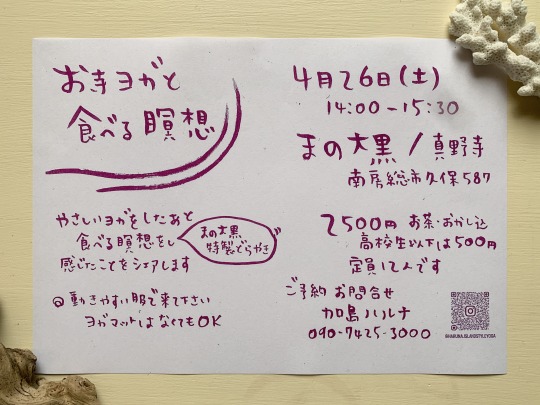 お寺ヨガと
食べる瞑想
4月26日(土)
14:00-15:30
まの大黒/真野寺
南房総市久保587
やさしいヨガをしたあと
食べる瞑想をし
感じたことをシェアします
まの大黒
特製どらやき
@動きやすい服で来て下さい
ヨガマットはなくてもOK
2500円 お茶・おかし込
高校生以下は500円
定員12人です
ご予約 お問合せ
加島ハルナ
090-7425-3000
@HARUNA.ISLANDSTYLEYOGA